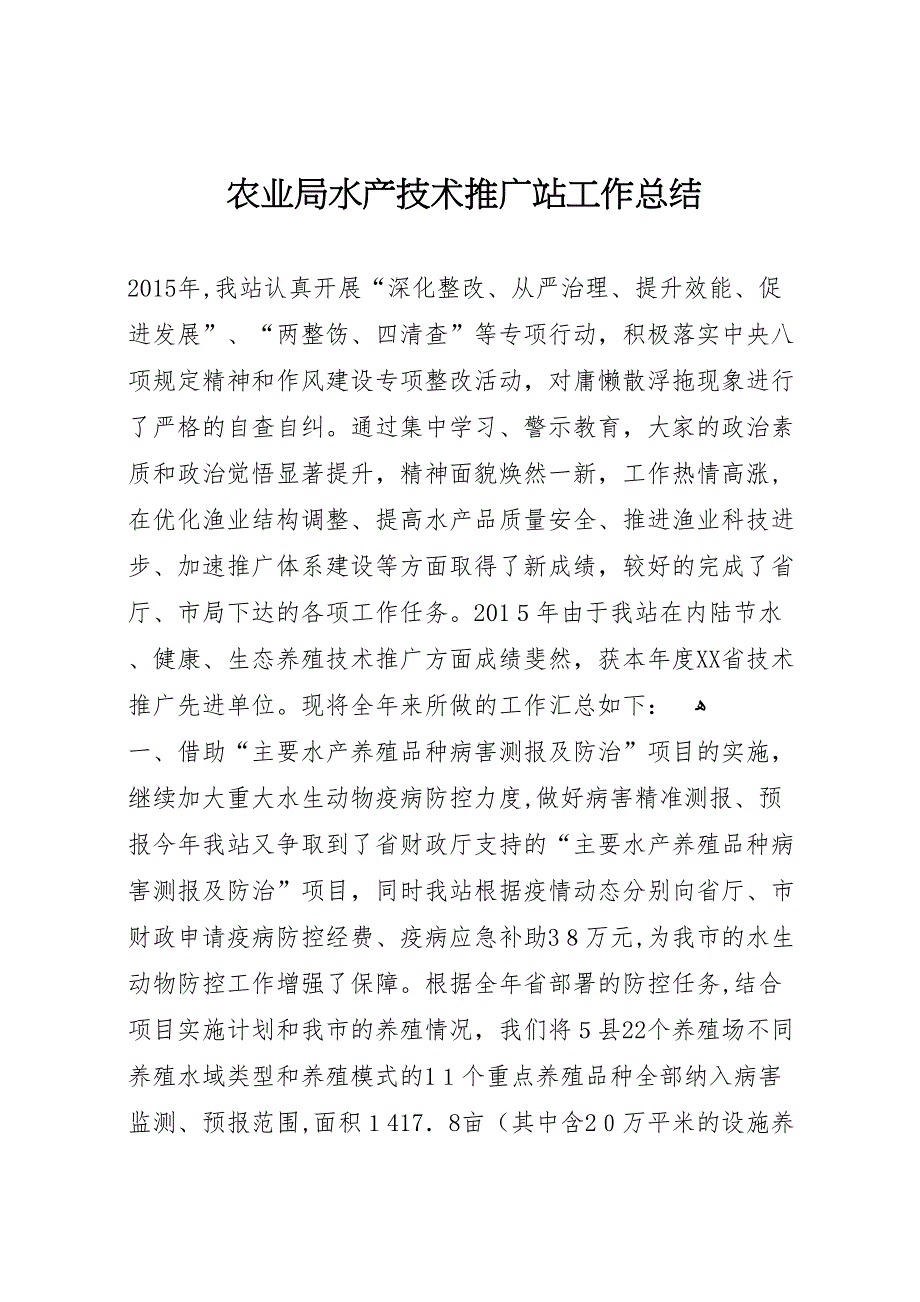 农业局水产技术推广站工作总结
2015年,我站认真开展“深化整改、从严治理、提升效能、促
进发展”、“两整饬、四清查”等专项行动，积极落实中央八
项规定精神和作风建设专项整改活动，对庸懒散浮拖现象进行
了严格的自查自纠。通过集中学习、警示教育，大家的政治素
质和政治觉悟显著提升，精神面貌焕然一新，工作热情高涨,
在优化渔业结构调整、提高水产品质量安全、推进渔业科技进
步、加速推广体系建设等方面取得了新成绩，较好的完成了省
厅、市局下达的各项工作任务。201５年由于我站在内陆节水
、健康、生态养殖技术推广方面成绩斐然，获本年度XX省技术
推广先进单位。现将全年来所做的工作汇总如下：　ﻫ
一、借助“主要水产养殖品种病害测报及防治”项目的实施，
继续加大重大水生动物疫病防控力度,做好病害精准测报、预
报今年我站又争取到了省财政厅支持的“主要水产养殖品种病
害测报及防治”项目，同时我站根据疫情动态分别向省厅、市
财政申请疫病防控经费、疫病应急补助3８万元,为我市的水生
动物防控工作增强了保障。根据全年省部署的防控任务,结合
项目实施计划和我市的养殖情况，我们将５县22个养殖场不同
养殖水域类型和养殖模式的1１个重点养殖品种全部纳入病害
监测、预报范围,面积１417．8亩（其中含2０万平米的设施养